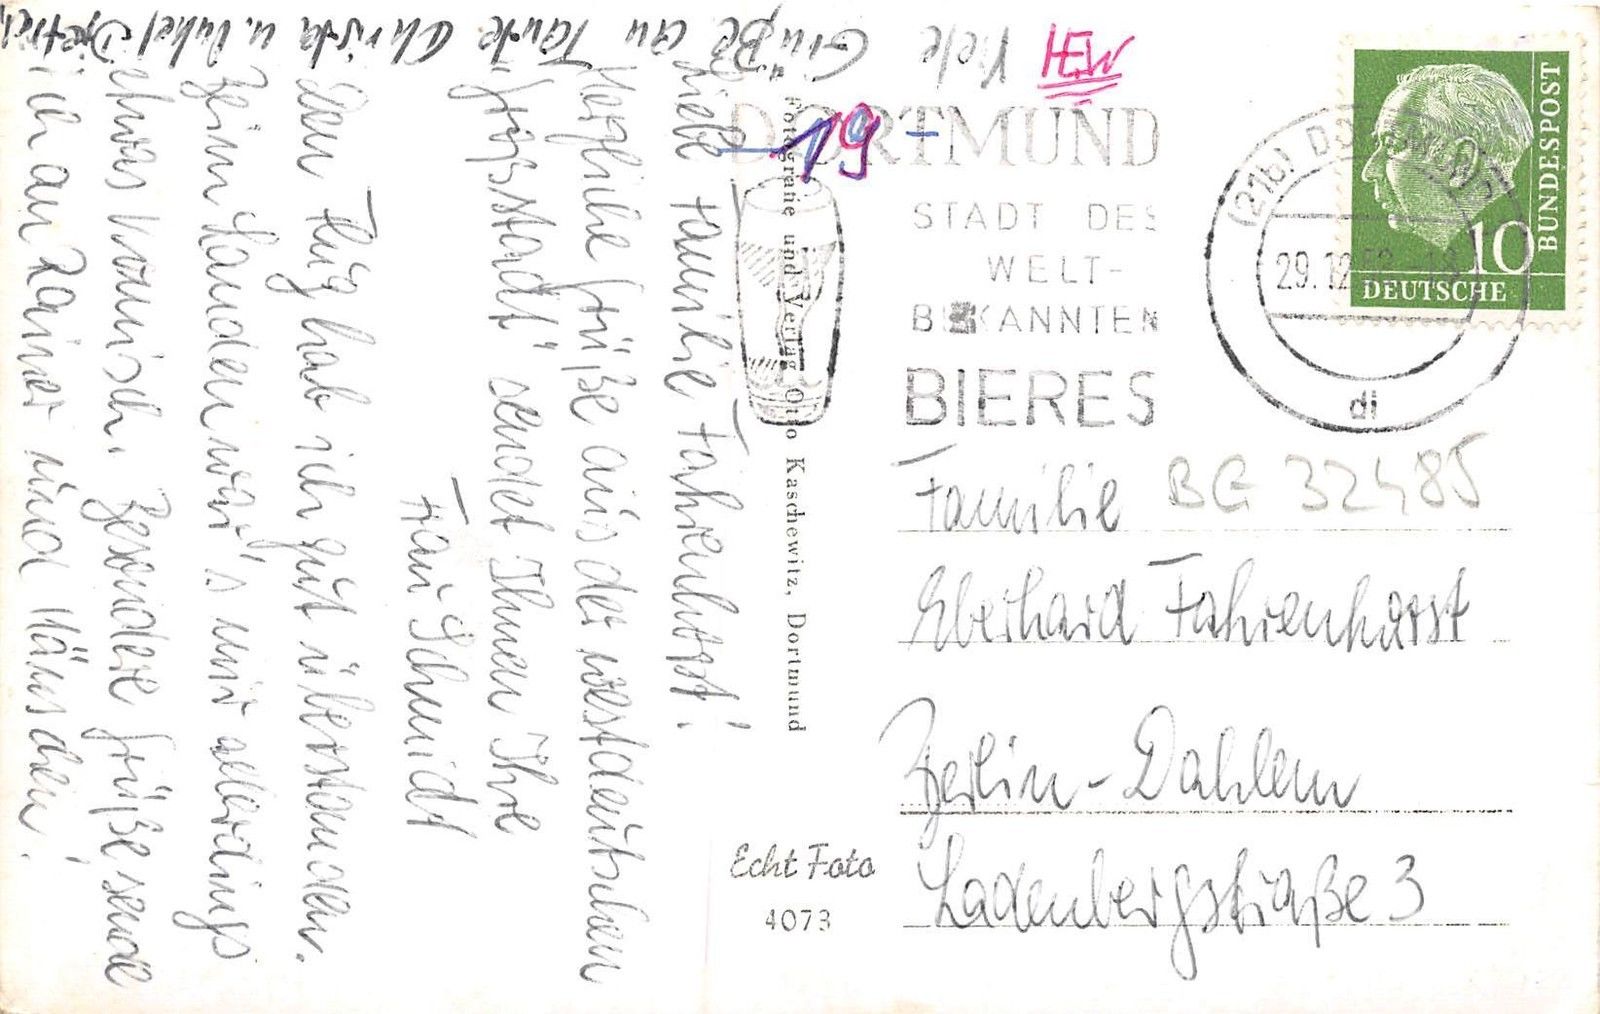 Viele Grüße an Tante Christa u. Onkel Dietrich
Liebe Familie Fahrenhorst!
Herzliche Grüße aus der westdeutschen
"Großstadt" sendet Ihnen Ihre
Frau Schmidt
Den Flug hab ich gut überstanden.
Beim Landen war's mir allerdings
etwas komisch. Besondere Grüße sende
ich an Rainer und Hänschen!
HEW
19-
DORTMUND
STADT DES
WELT-
BEKANNTEN
BIERES
(21b) DORTMUND
29.12.
di
10
DEUTSCHE
BUNDESPOST
Fotografie und Verlag Otto Kaschewitz, Dortmund
Echt Foto
4073
BG 32485
Familie
Eberhard Fahrenhorst
Berlin-Dahlem
Ladenbergstraße 3